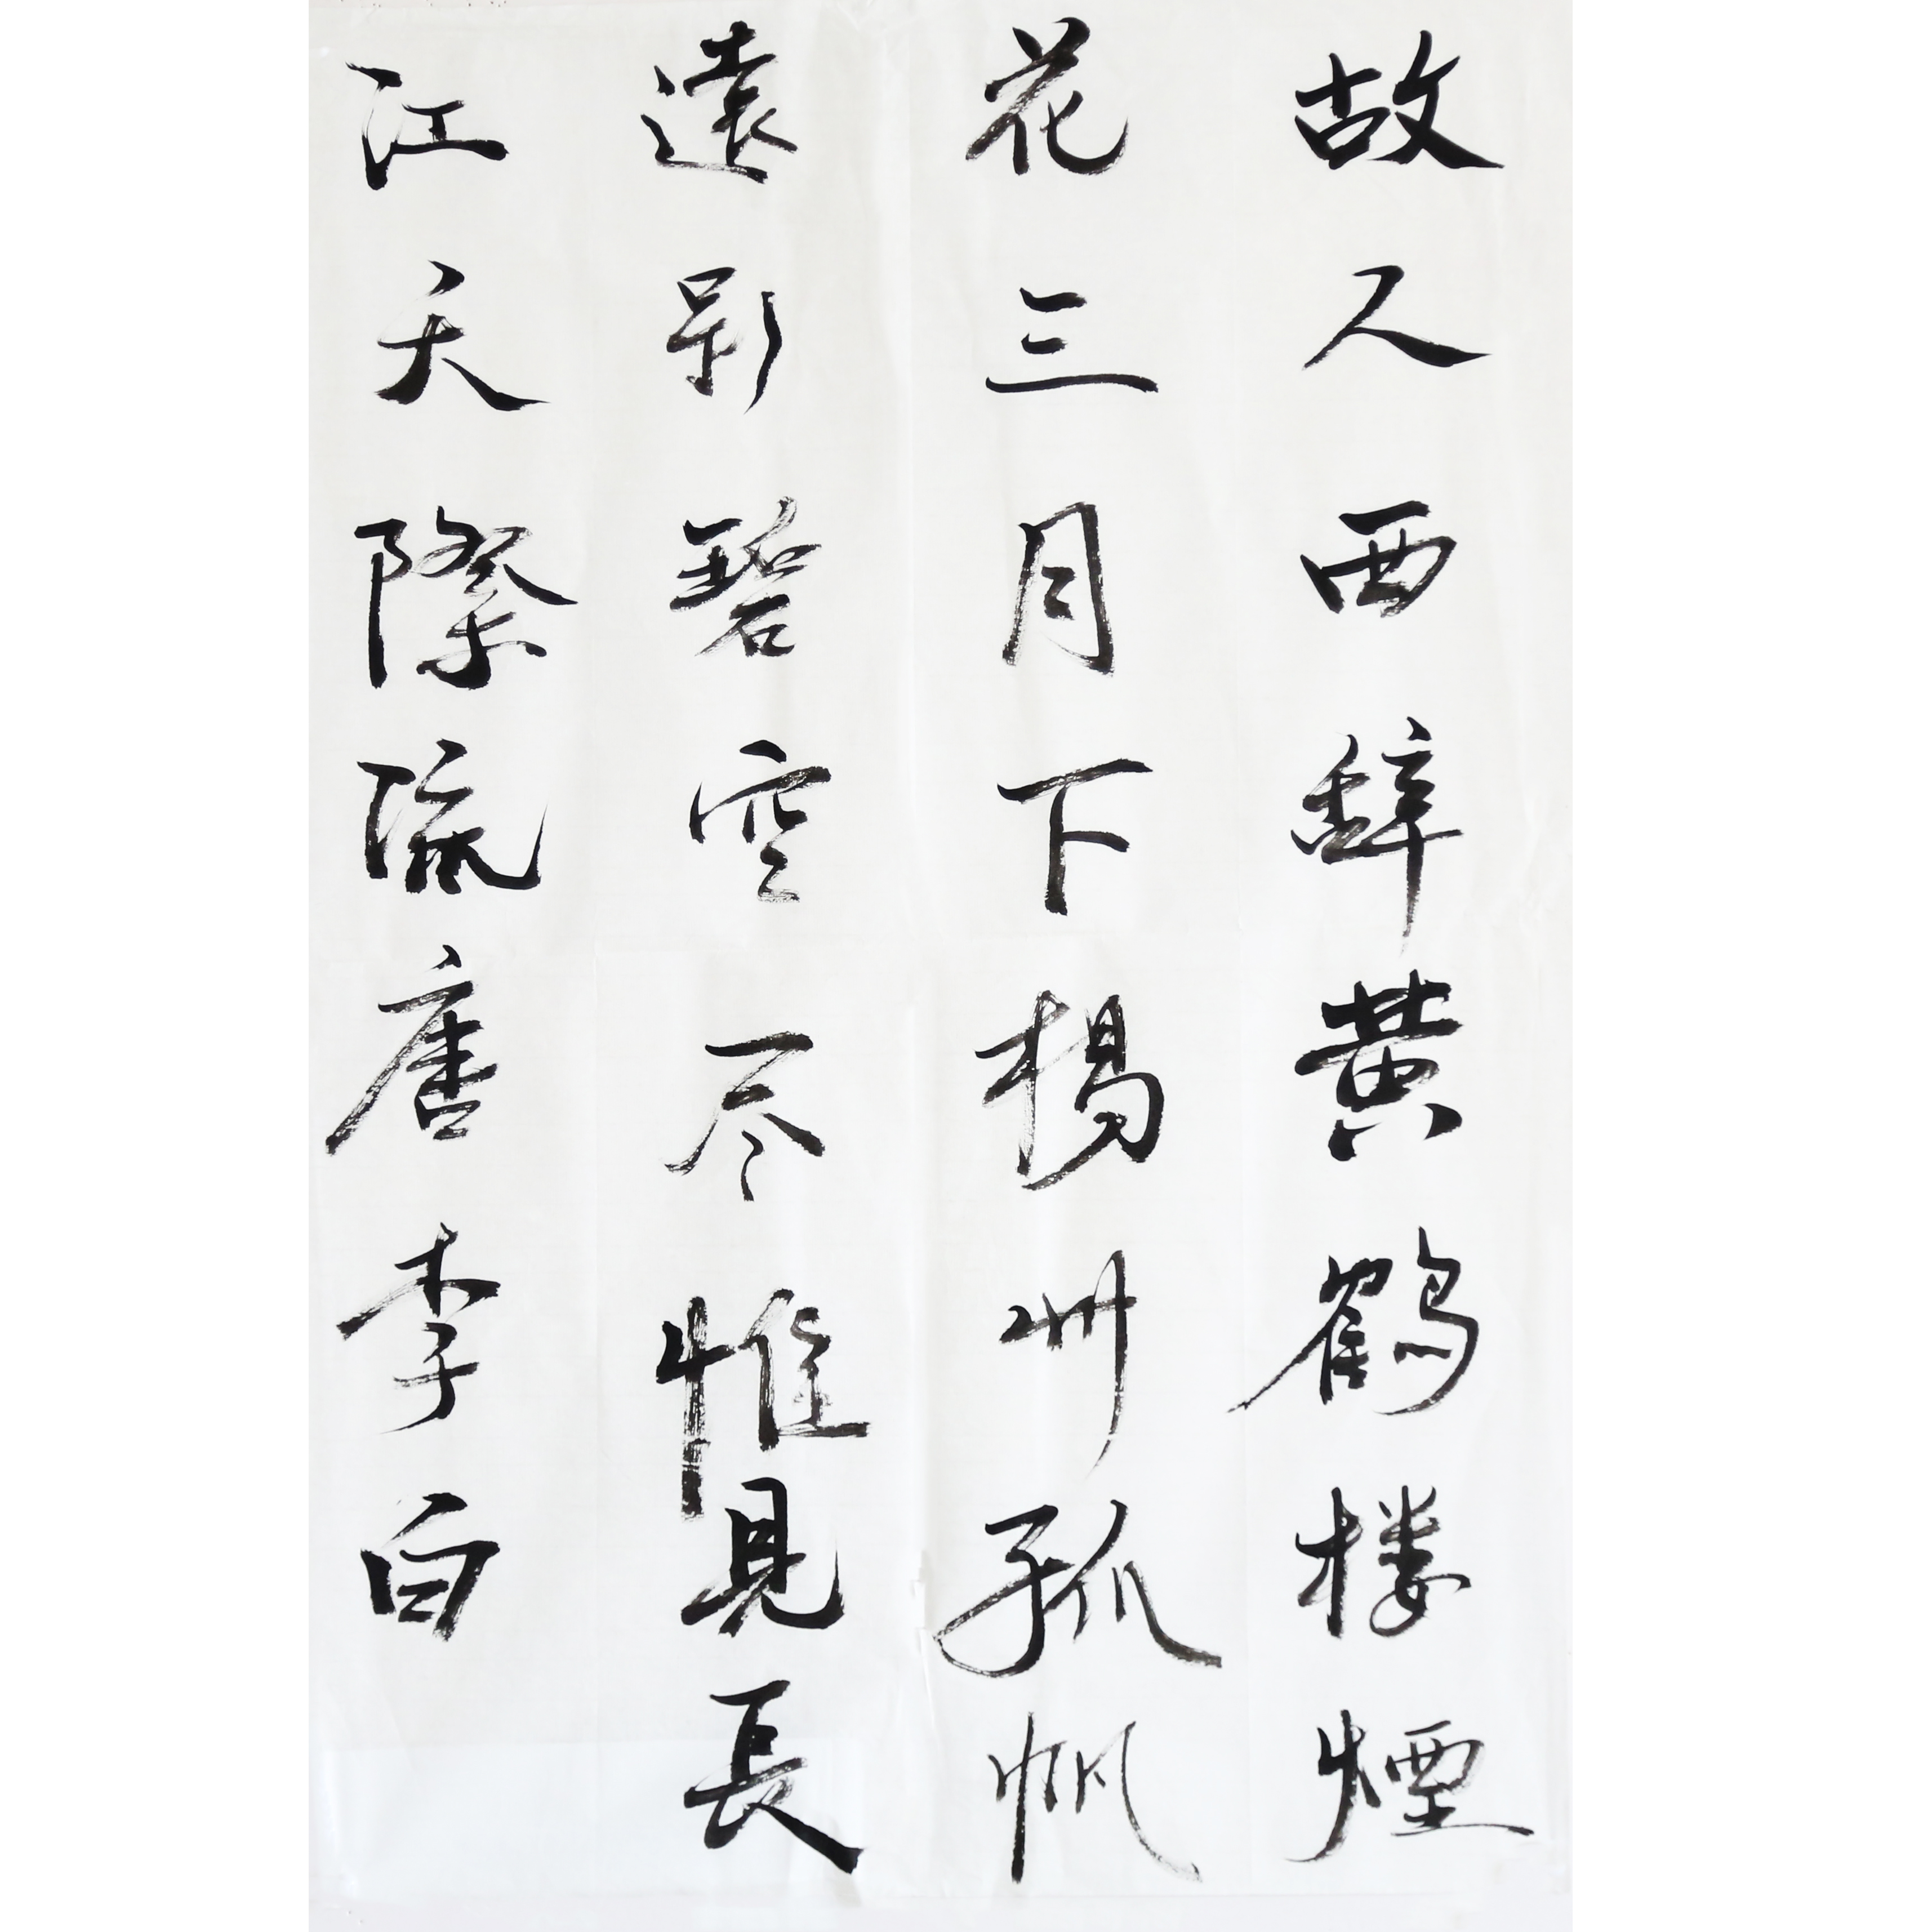 故人西辭黄鶴楼煙
花三月下楊州孤帆
遠影碧空尽惟見長
江天際流唐李白